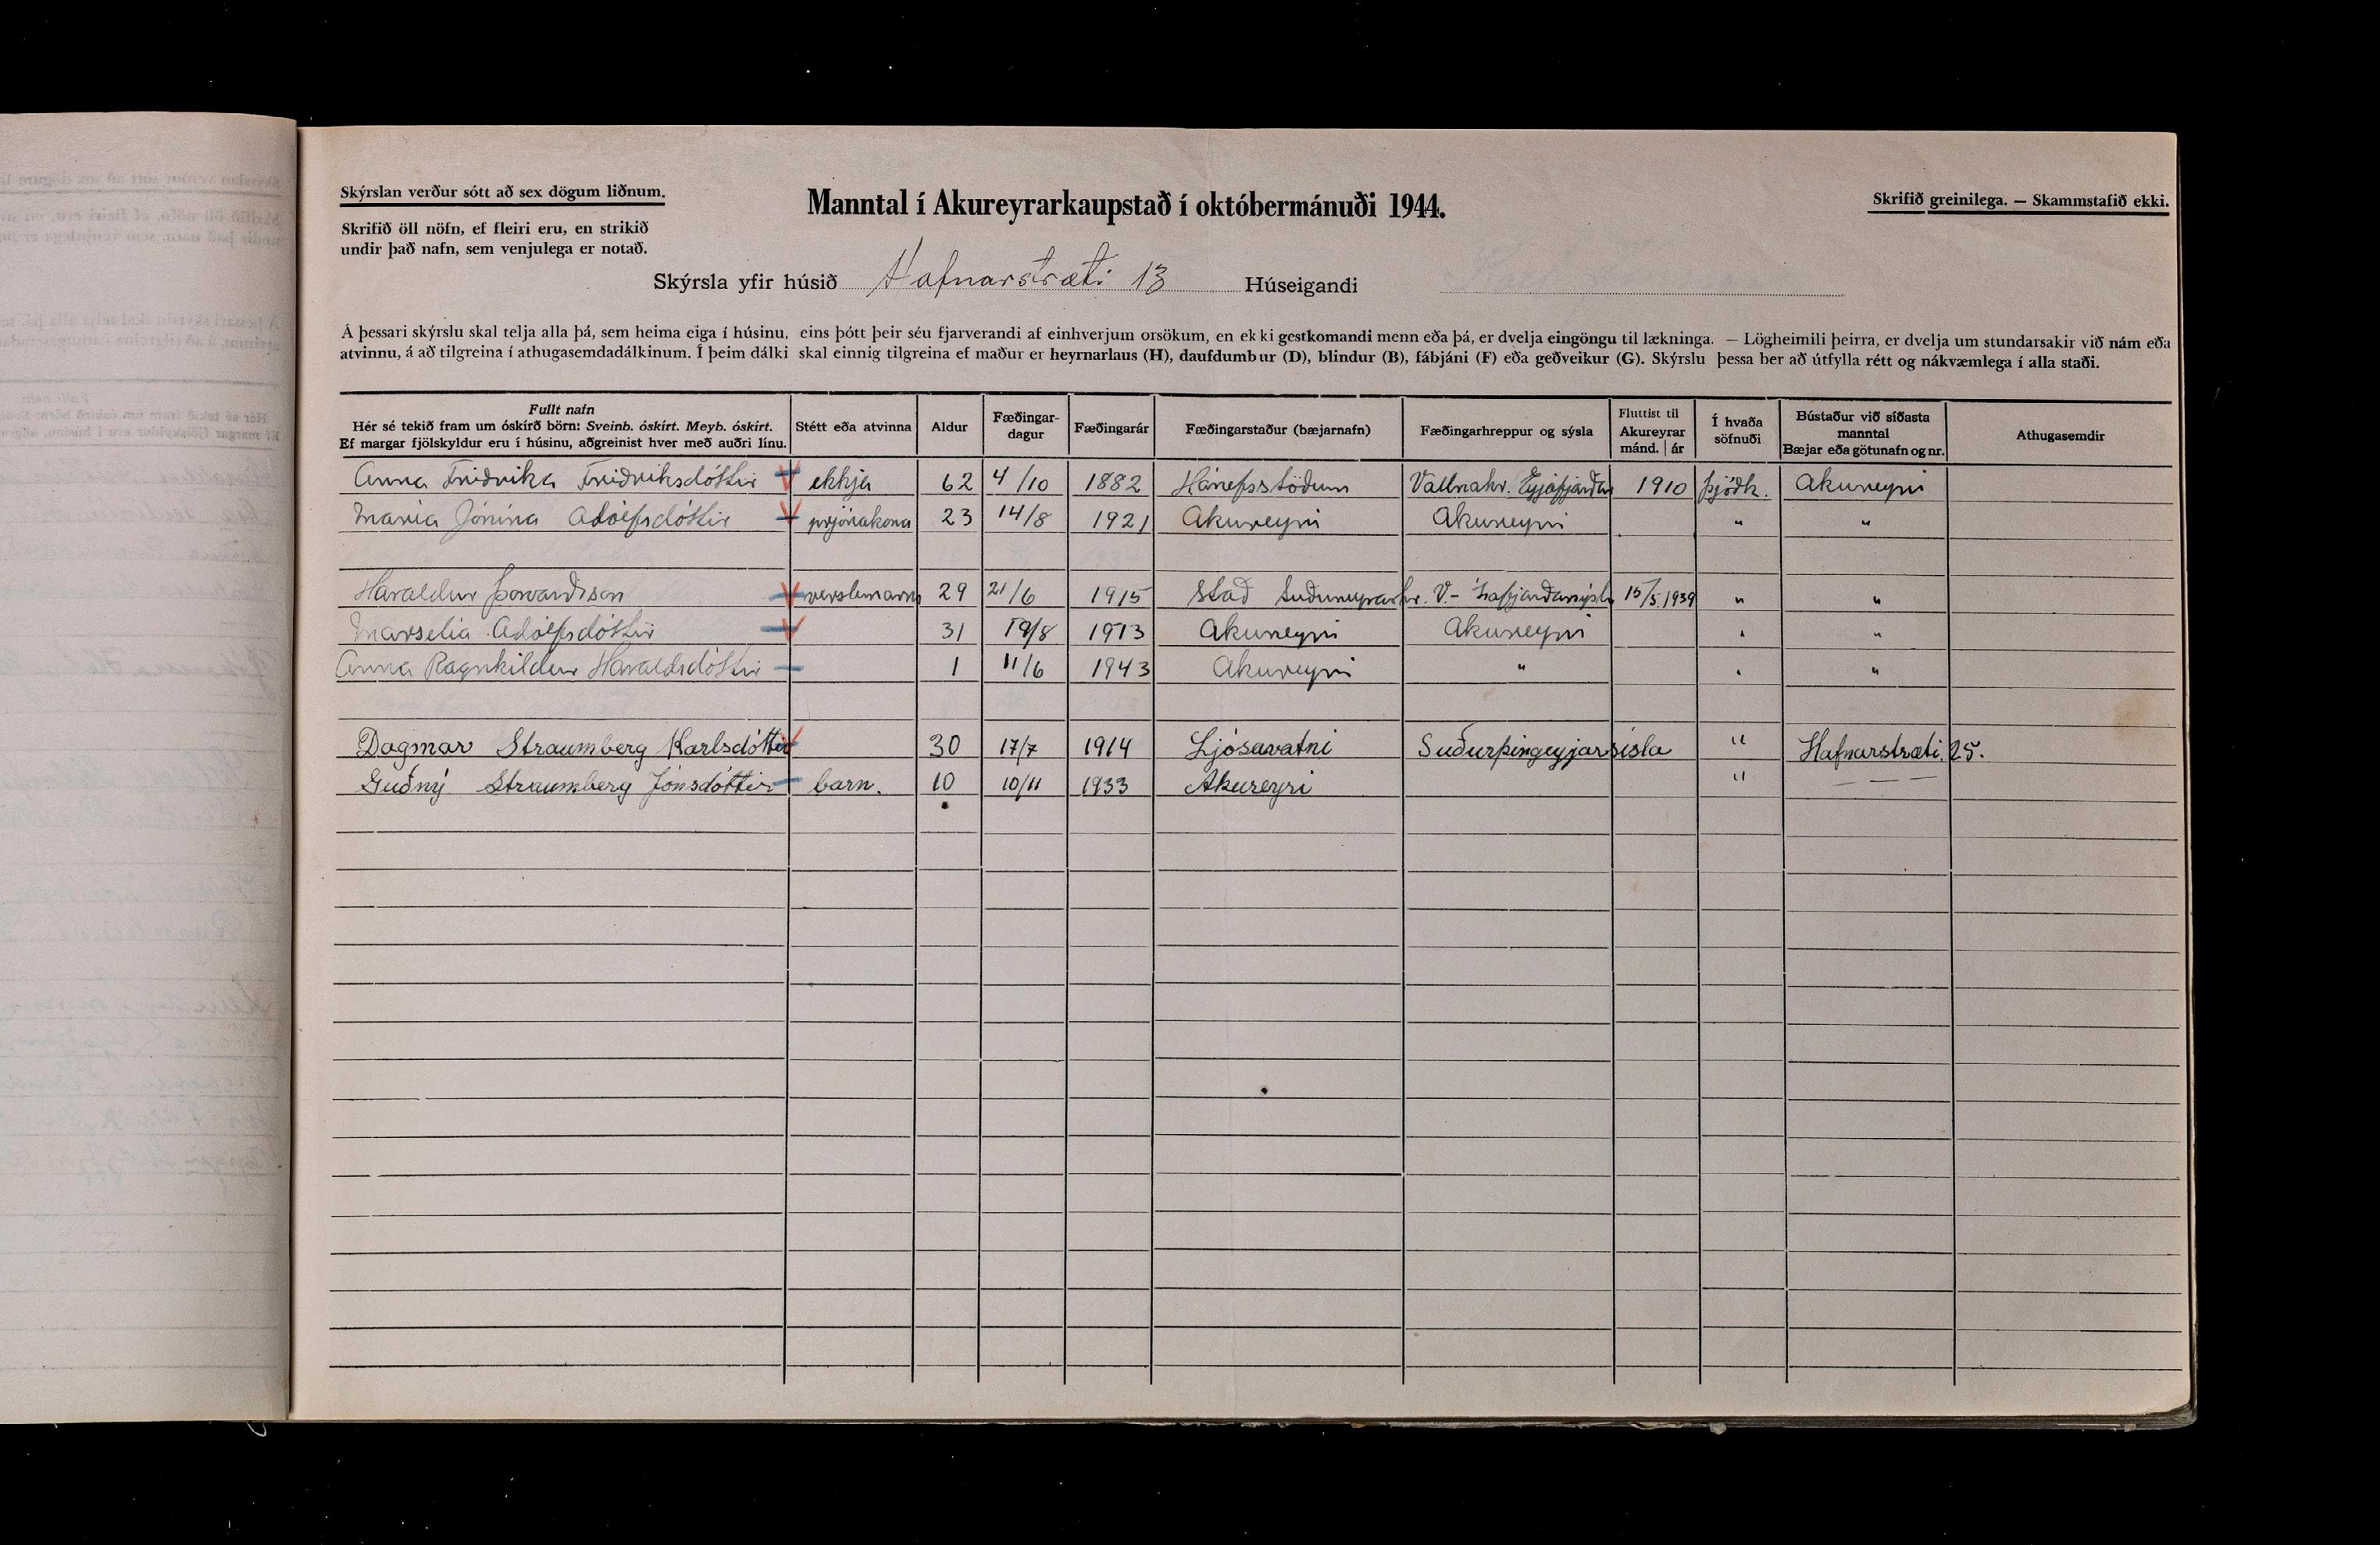 Skýrslan verður sótt að sex dögum liðnum.
Manntal í Akureyrarkaupstað í októbermánuði 1944.
Skrifið greinilega. — Skammstafið ekki.
Skrifið öll nöfn, ef fleiri eru, en strikið
undir það nafn, sem venjulega er notað.
Skýrsla yfir húsið Hafnarstræti 13 Húseigandi
Á þessari skýrslu skal telja alla þá, sem heima eiga í húsinu, eins þótt þeir séu fjarverandi af einhverjum orsökum, en ekki gestkomandi menn eða þá, er dvelja eingöngu til lækninga. — Lögheimili þeirra, er dvelja um stundarsakir við nám eða
atvinnu, á að tilgreina í athugasemdadálkinum. Í þeim dálki skal einnig tilgreina ef maður er heyrnarlaus (H), daufdumbur (D), blindur (B), fábjáni (F) eða geðveikur (G). Skýrslu þessa ber að útfylla rétt og nákvæmlega í alla staði.
Fullt nafn
Hér sé tekið fram um óskírð börn: Sveinb. óskírt. Meyb. óskírt.
Ef margar fjölskyldur eru í húsinu, aðgreinist hver með auðri línu.
Stétt eða atvinna
Aldur
Fæðingar-
dagur
Fæðingarár
Fæðingarstaður (bæjarnafn)
Fæðingarhreppur og sýsla
Fluttist til
Akureyrar
mánd. | ár
Í hvaða
söfnuði
Bústaður við síðasta
manntal
Bæjar eða götunafn og nr.
Athugasemdir
Anna Friðrika Friðriksdóttir ekkja 62 4/10 1882 Hánefsstöðum Vallnahr. Eyjafjarðar 1910 þjóðk. Akureyri
María Jónína Adólfsdóttir prjónakona 23 14/8 1921 Akureyri Akureyri " "
Haraldur Þorvarðsson verslunarm 29 21/6 1915 Stað Suðureyrarhr. V.- Ísafjarðarsýsla 15/5. 1939 " "
Marselía Adólfsdóttir 31 19/8 1913 Akureyri Akureyri " "
Anna Ragnhildur Haraldsdóttir 1 11/6 1943 Akureyri " " "
Dagmar Straumberg Karlsdóttir 30 17/7 1914 Ljósavatni Suðurþingeyjarsísla " Hafnarstræti 25.
Guðný Straumberg Jónsdóttir barn. 10 10/11 1933 Akureyri " — —